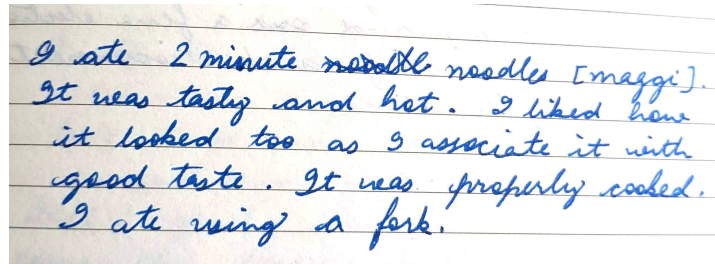 I ate 2 minute noodles [maggi].
It was tasty and hot. I liked how
it looked too as I associate it with
good taste. It was properly cooked.
I ate using a fork.